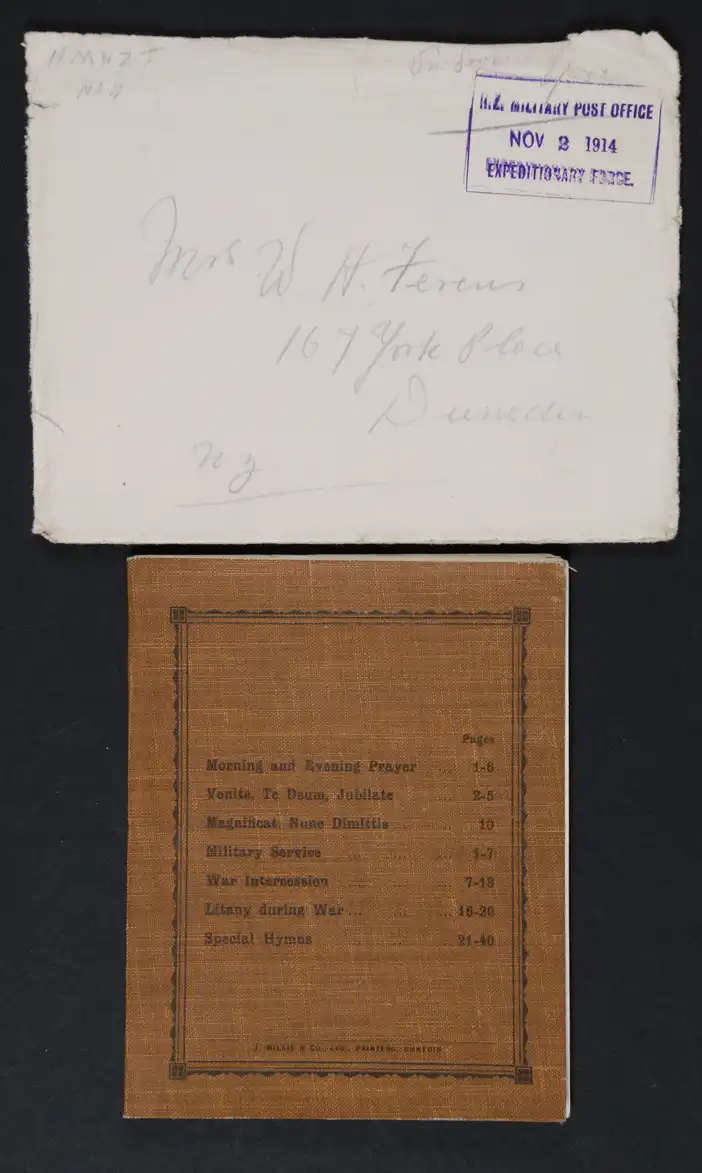 HMNZT
No 9
N.Z. MILITARY POST OFFICE
NOV 2 1914
EXPEDITIONARY FORCE.
Mrs W H. Ferens
167 York Place
Dunedin
NZ
Pages
Morning and Evening Prayer ... 1-6
Venite, Te Deum, Jubilate 2-5
Magnificat, Nunc Dimittis ... ... 10
Military Service ... ... ... 1-7
War Intercession ... ... ... 7-13
Litany during War ... ... ... 16-20
Special Hymns ... ... ... 21-40
J. WILKIE & CO., LTD., PRINTERS, DUNEDIN